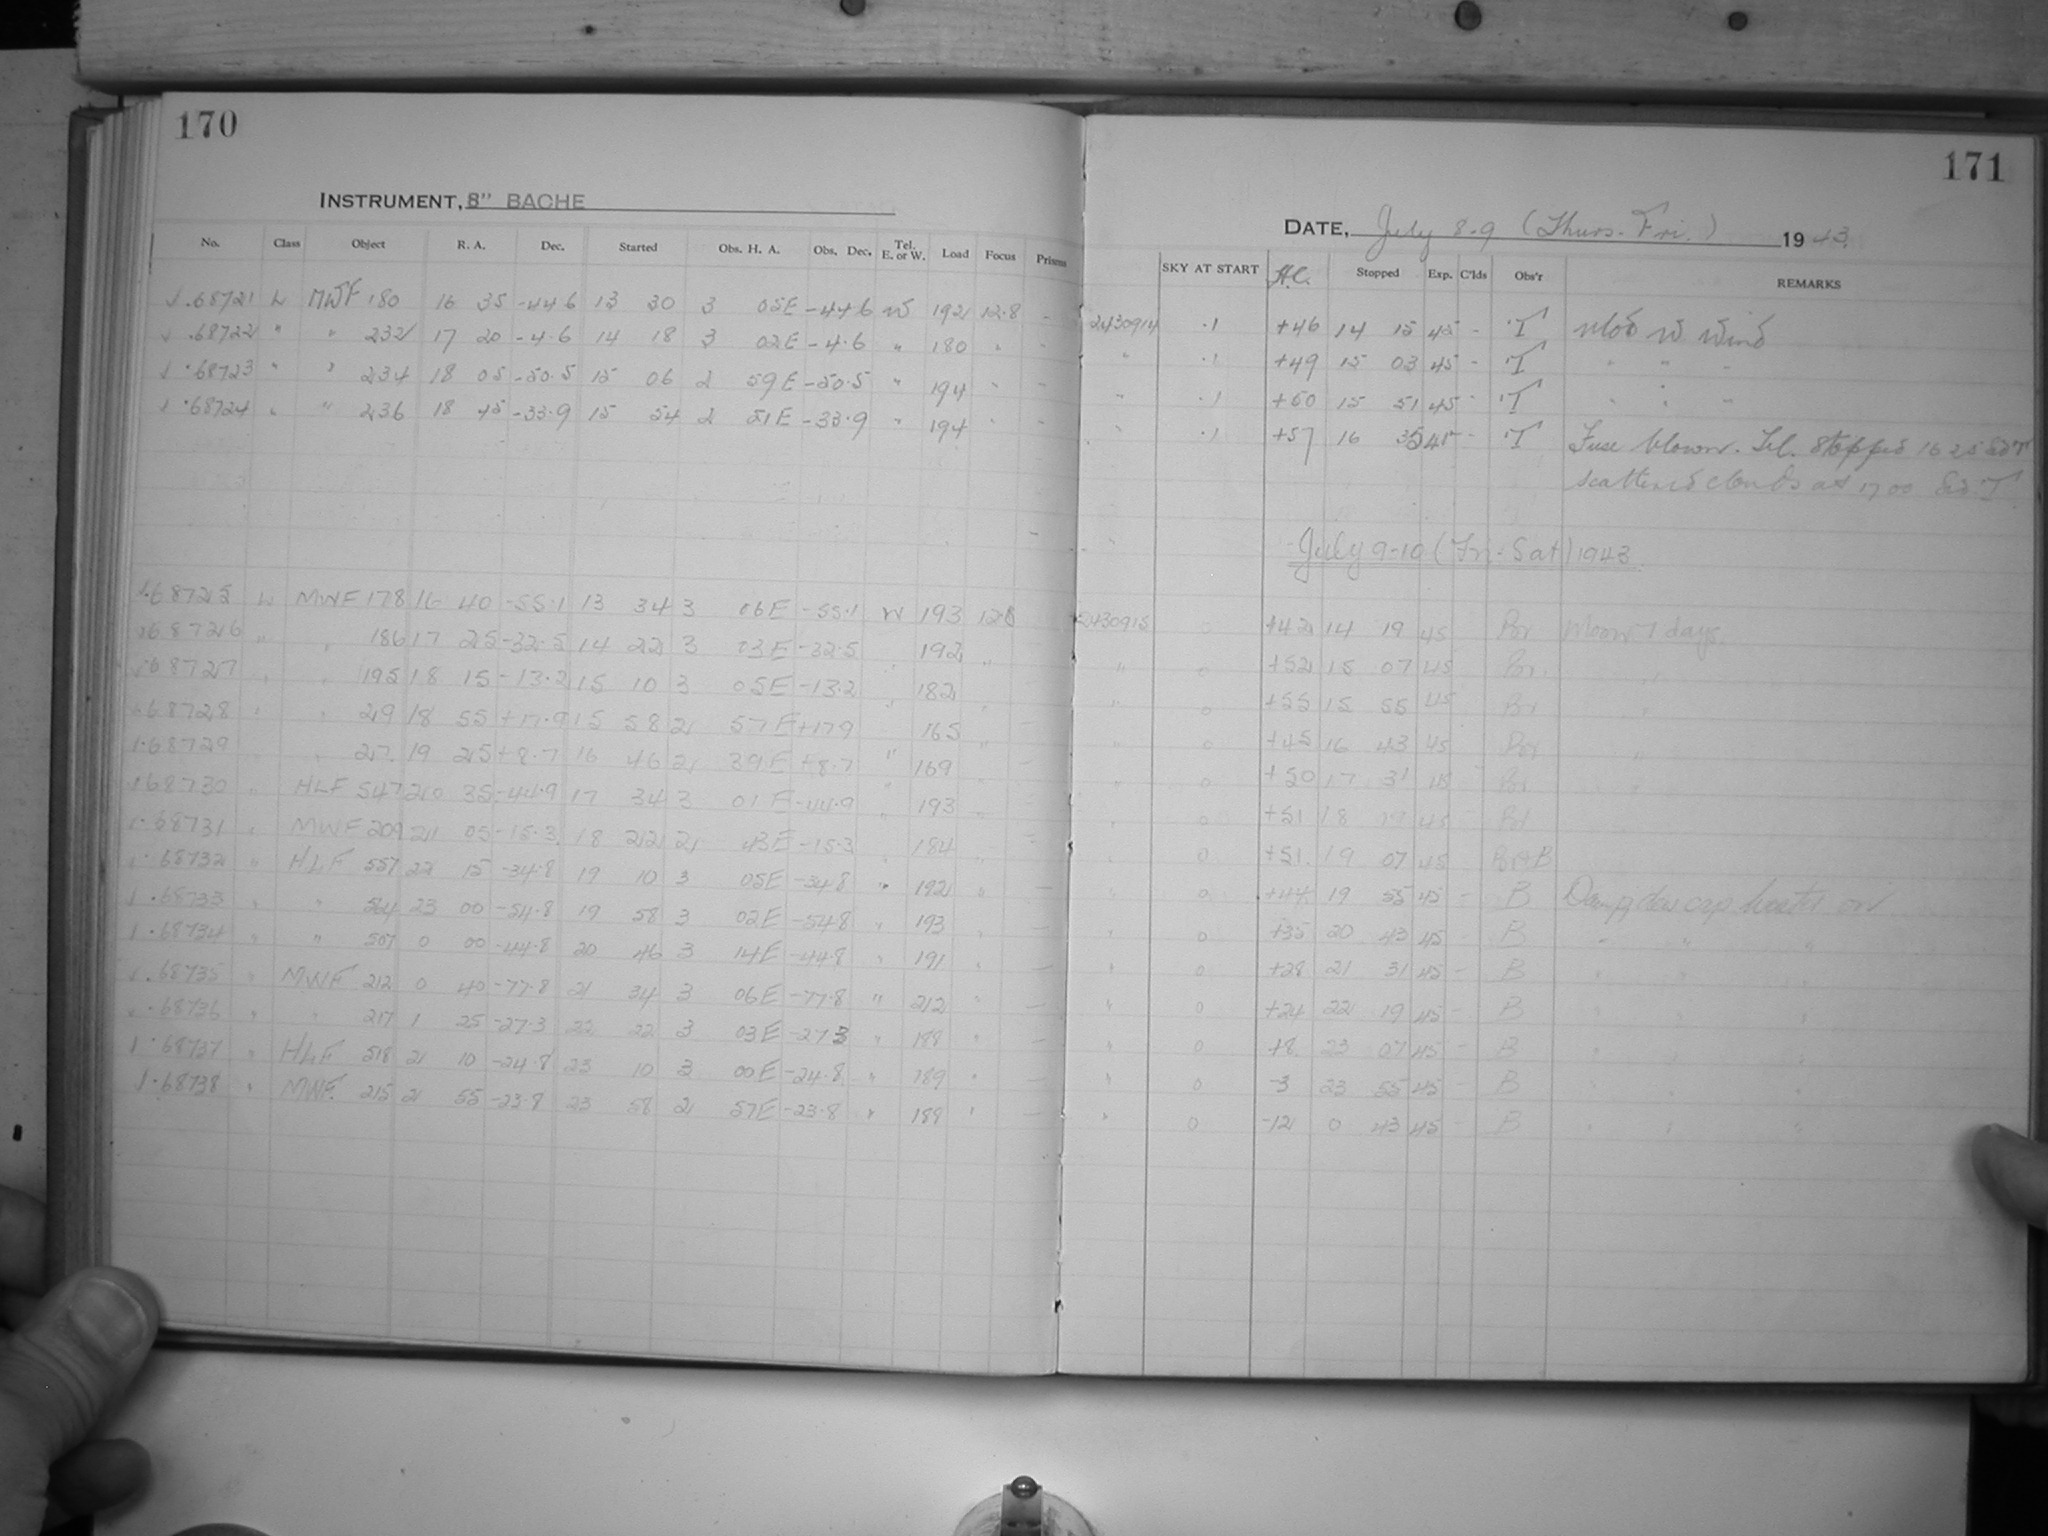 170
INSTRUMENT, 8" BACHE
No. Class Object R. A. Dec. Started Obs. H. A. Obs. Dec. Tel. E. or W. Load Focus Prisms
.68721 L MWF 180 16 35 -44.6 13 30 3 05E -44.6 W 192 12.8 -
.68722 " " 232 17 20 -4.6 14 18 3 02E -4.6 " 180 " -
.68723 " " 234 18 05 -50.5 15 06 2 59E -50.5 " 194 " -
.68724 " " 236 18 45 -33.9 15 54 2 51E -33.9 " 194 " -
.68725 L MWF 178 16 40 -55.1 13 34 3 06E -55.1 W 193 12.8
.68726 " " 186 17 25 -32.5 14 22 3 03E -32.5 192 "
.68727 " " 195 18 15 -13.2 15 10 3 05E -13.2 " 182 "
.68728 " " 219 18 55 +17.9 15 58 2 57E +17.9 " 165 -
.68729 " " 217 19 25 +8.7 16 46 2 39E +8.7 " 169 " -
.68730 " HLF 547 20 35 -44.9 17 34 3 01E -44.9 " 193 " -
.68731 " MWF 209 21 05 -15.3 18 22 2 43E -15.3 " 184 "
.68732 " HLF 557 22 15 -34.8 19 10 3 05E -34.8 " 192 " -
.68733 " " 564 23 00 -54.8 19 58 3 02E -54.8 " 193 " -
.68734 " " 507 0 00 -44.8 20 46 3 14E -44.8 " 191 " -
.68735 " MWF 212 0 40 -77.8 21 34 3 06E -77.8 " 212 " -
.68736 " " 217 1 25 -27.3 22 22 3 03E -27.3 " 188 " -
.68737 " HLF 518 2 10 -24.8 23 10 3 00E -24.8 " 189 " -
.68738 " MWF 215 2 55 -23.8 23 58 2 57E -23.8 " 188 " -
171
DATE, July 8-9 (Thurs.-Fri.) 1943
SKY AT START H.C. Stopped Exp. C'lds Obs'r REMARKS
2430914 .1 +46 14 15 45 - T Mod W Wind
" .1 +49 15 03 45 - T " " "
" .1 +50 15 51 45 - T " " "
" .1 +57 16 35 41 - T Fuse blown. Tel. stopped 16 25 Sid T
scattered clouds at 17 00 Sid T
July 9-10 (Fri-Sat) 1943
2430915 0 +42 14 19 45 Br Moon 7 days
" 0 +52 15 07 45 Br "
" 0 +55 15 55 45 Br "
" 0 +45 16 43 45 Br "
" 0 +50 17 31 45 Br "
" 0 +51 18 19 45 Br
" 0 +51 19 07 45 Br&B
" 0 +44 19 55 45 - B Damp, dew cap heater on
" 0 +35 20 43 45 B " " "
" 0 +28 21 31 45 - B " " "
" 0 +24 22 19 45 - B " " "
" 0 +8 23 07 45 - B " " "
" 0 -3 23 55 45 - B " " "
" 0 -12 0 43 45 - B " " "